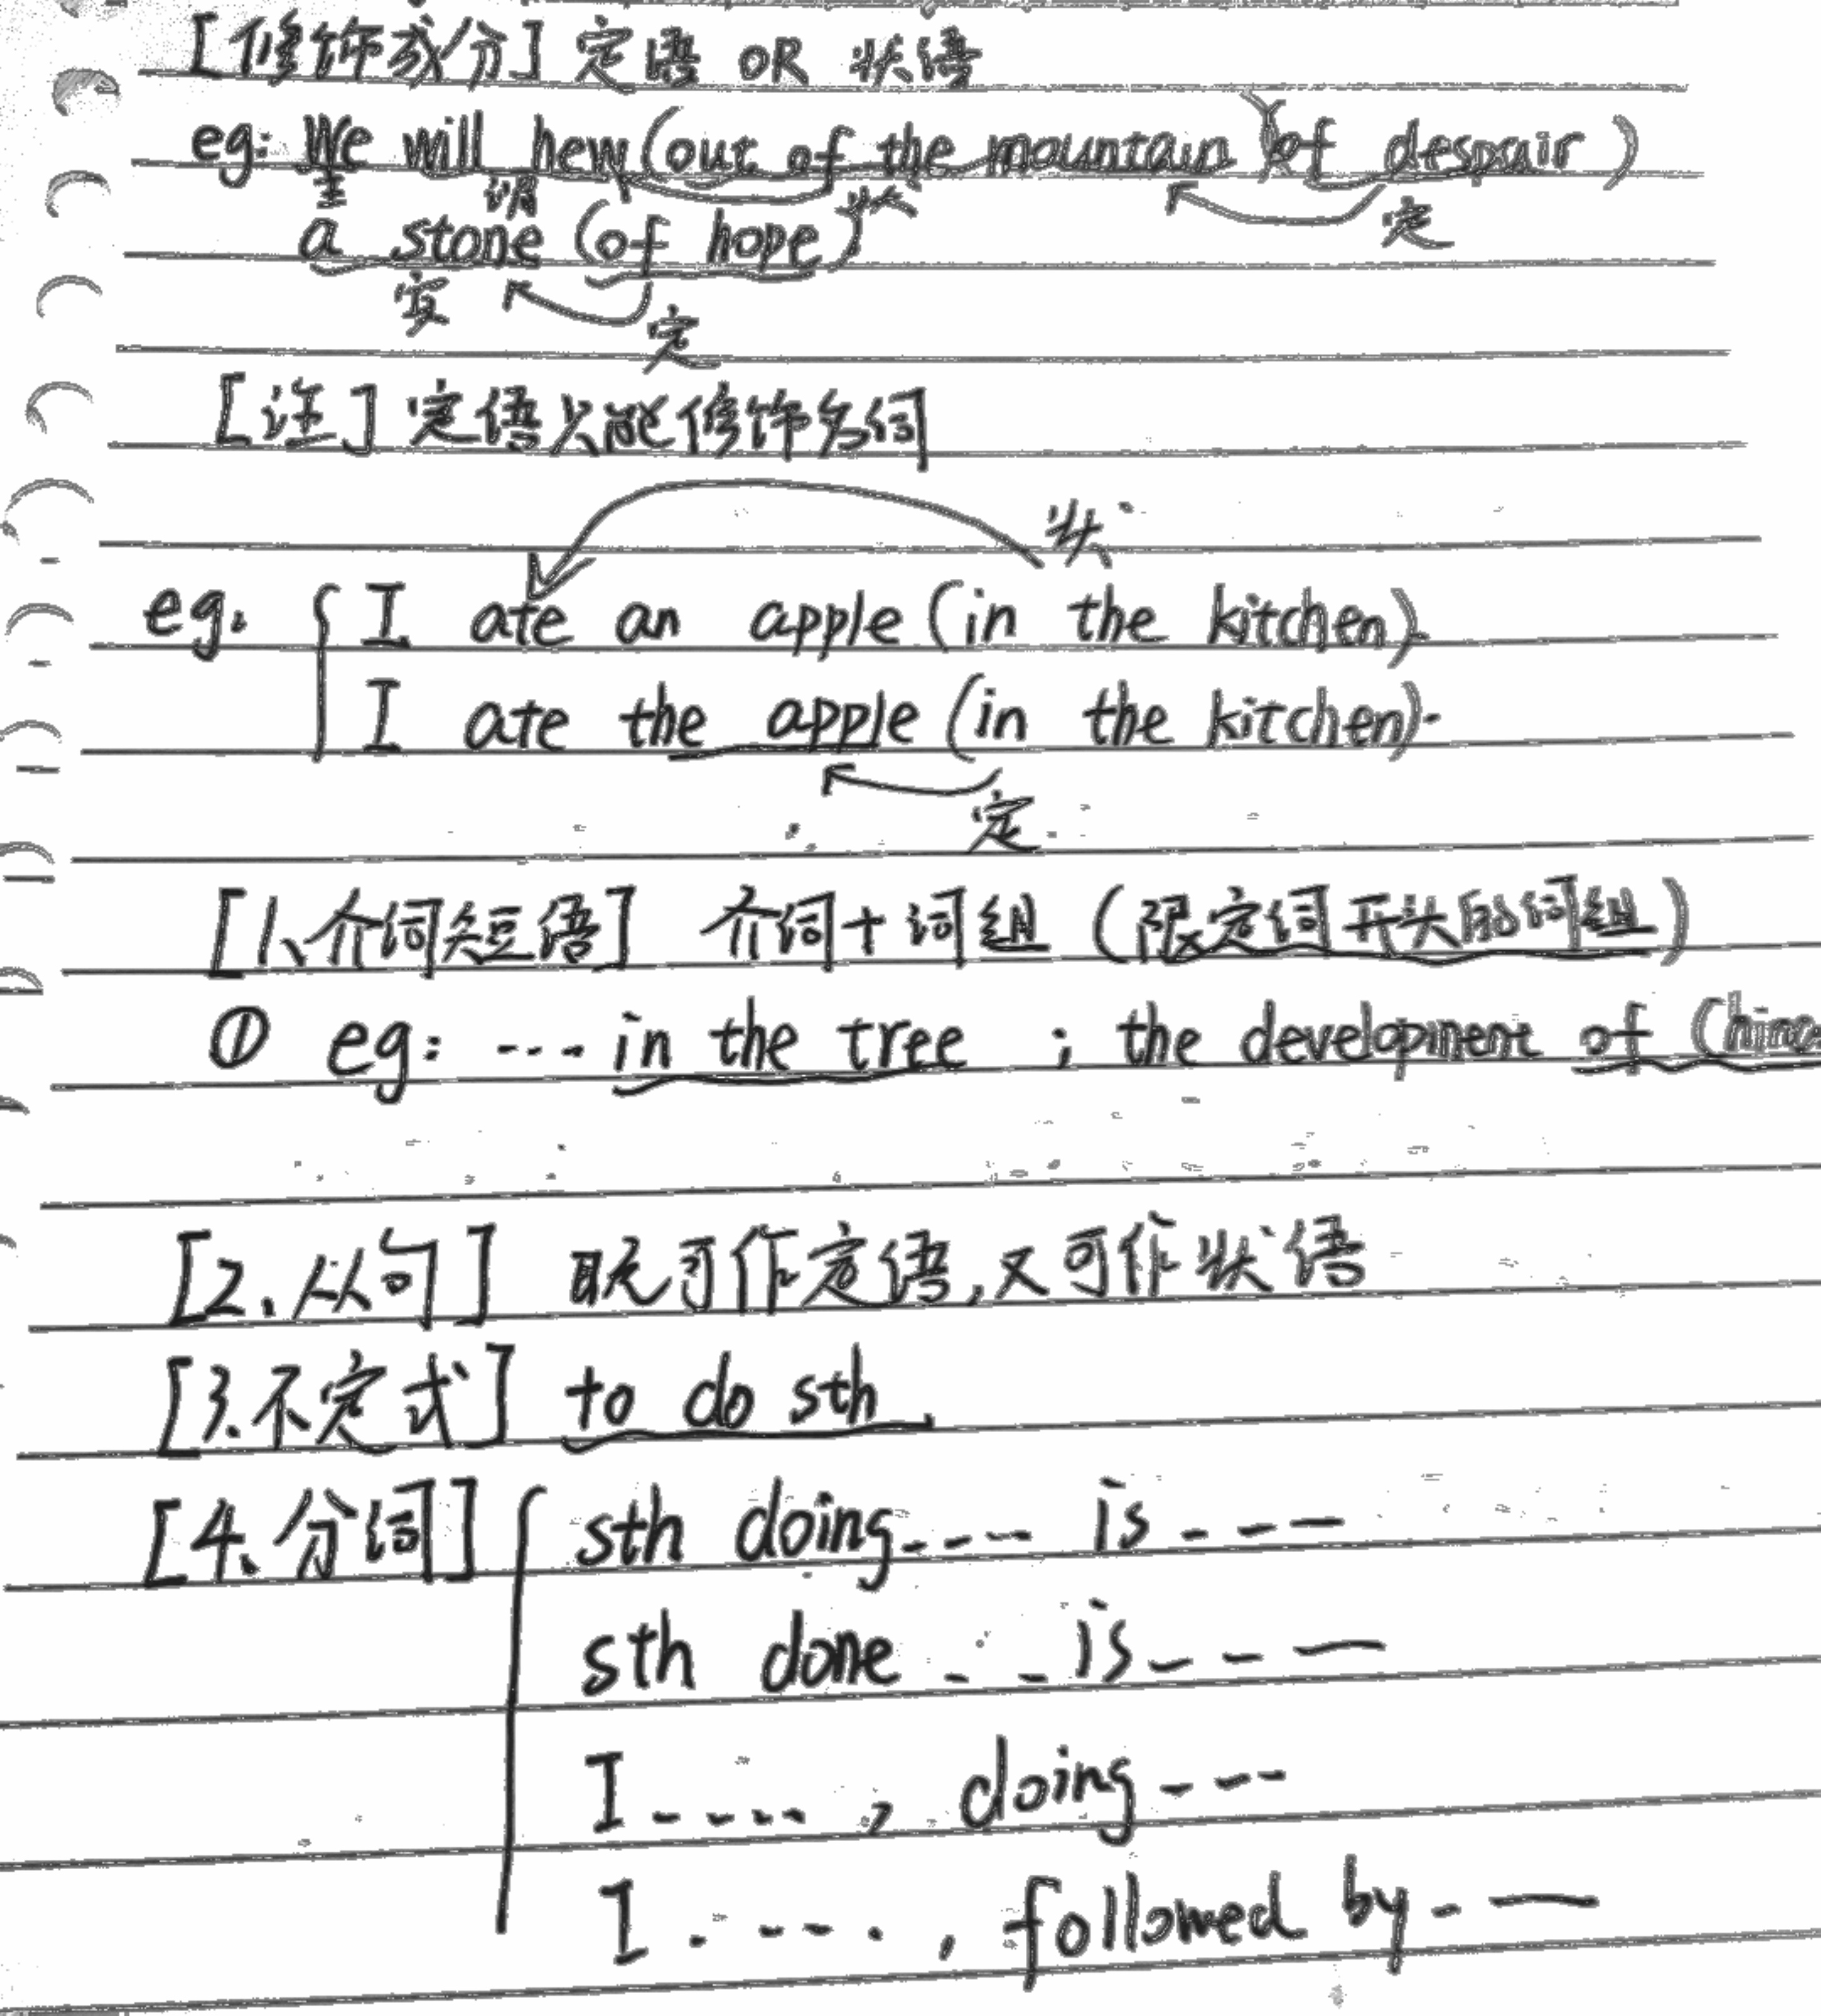 [修饰成分] 定语 OR 状语
eg: We will hew (out of the mountain) of despair)
主 谓 状 定
a stone (of hope)
宾 定
[注] 定语只能修饰名词
状
eg. I ate an apple (in the kitchen).
I ate the apple (in the kitchen).
定
[1、介词短语] 介词+词组 (限定词开头的词组)
① eg: ... in the tree ; the development of China
[2.从句] 既可作定语,又可作状语
[3.不定式] to do sth.
[4、分词] sth doing.... is ...
sth done .. is...
I ...., doing...
I ...., followed by..